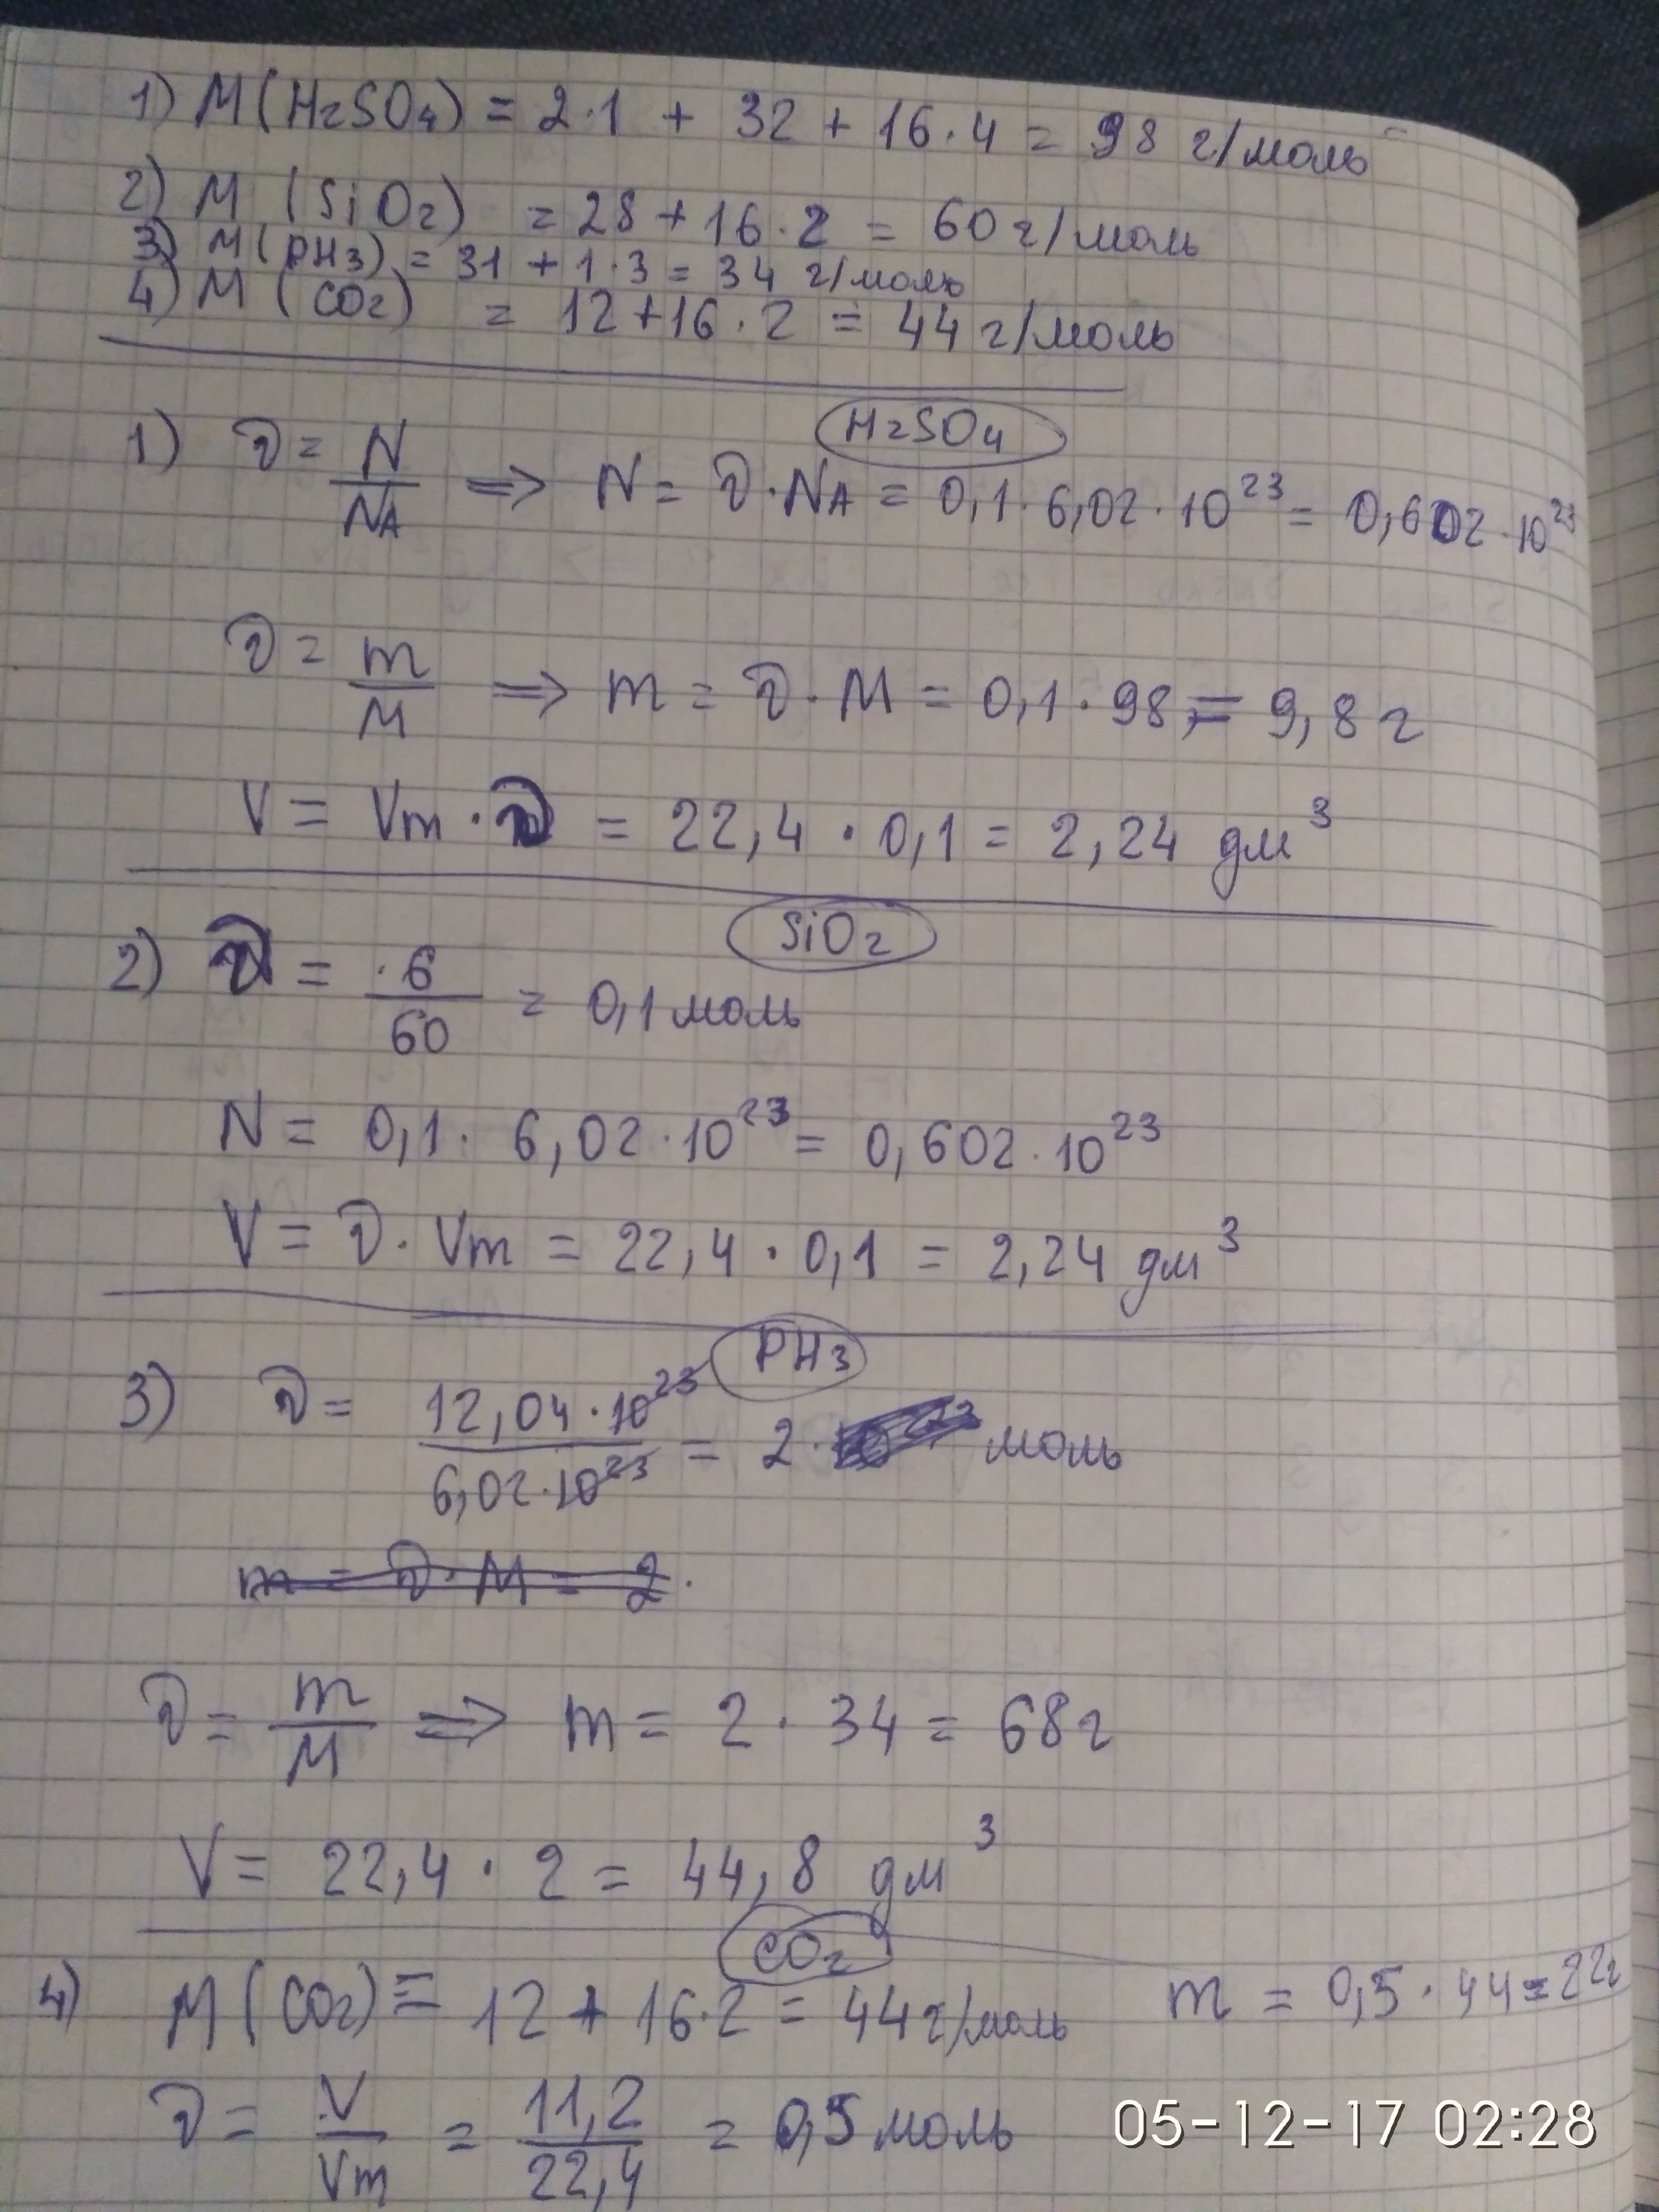 1) M(H2SO4) = 2·1 + 32 + 16·4 = 98 г/моль
2) M (SiO2) = 28 + 16·2 = 60 г/моль
3) M(PH3) = 31 + 1·3 = 34 г/моль
4) M (CO2) = 12+16·2 = 44 г/моль
H2SO4
1) ν = N/NA ⇒ N = ν·NA = 0,1·6,02·10^23 = 0,602·10^23
ν = m/M ⇒ m = ν·M = 0,1·98 = 9,8 г
V = Vm·ν = 22,4·0,1 = 2,24 дм³
SiO2
2) ν = 6/60 = 0,1 моль
N = 0,1·6,02·10^23 = 0,602·10^23
V = ν·Vm = 22,4·0,1 = 2,24 дм³
PH3
3) ν = 12,04·10^23/6,02·10^23 = 2· моль
m = ν·M = 2·
ν = m/M ⇒ m = 2·34 = 68 г
V = 22,4·2 = 44,8 дм³
CO2
4) M(CO2) = 12 + 16·2 = 44 г/моль m = 0,5·44 = 22г
ν = V/Vm = 11,2/22,4 = 0,5 моль
05-12-17 02:28